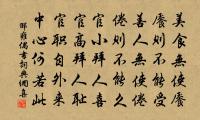 美食無使饜
饜則不能受
善人無使倦
倦則不能久
官小拜人喜
官高拜人恥
官職自外來
中心何若此
邵雍偶書詞典網喜